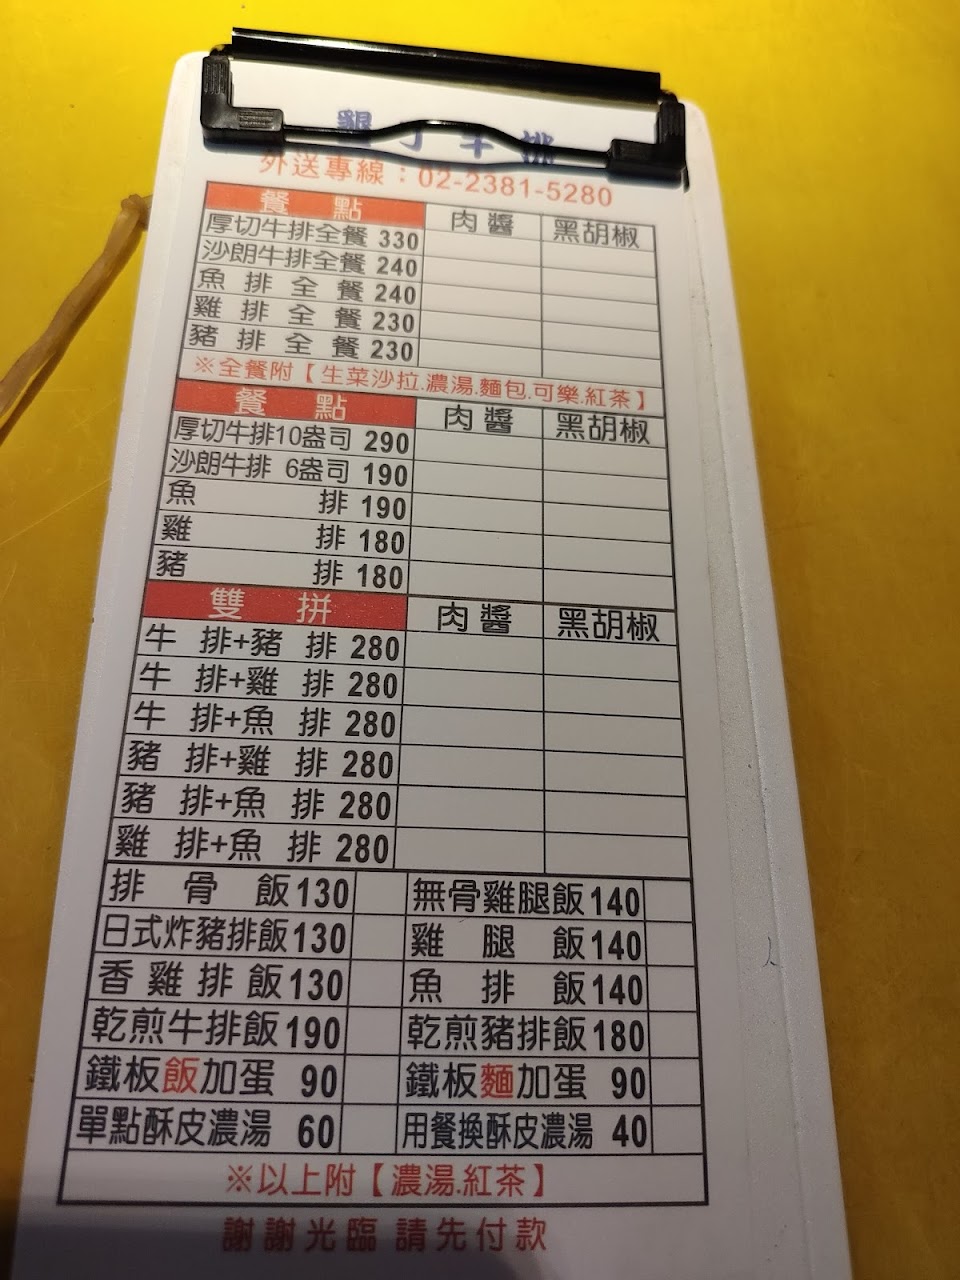 墾丁牛排
外送專線：02-2381-5280
餐點 肉醬 黑胡椒
厚切牛排全餐 330
沙朗牛排全餐 240
魚排全餐 240
雞排全餐 230
豬排全餐 230
※全餐附【生菜沙拉.濃湯.麵包.可樂.紅茶】
餐點 肉醬 黑胡椒
厚切牛排10盎司 290
沙朗牛排 6盎司 190
魚排 190
雞排 180
豬排 180
雙拼 肉醬 黑胡椒
牛排+豬排 280
牛排+雞排 280
牛排+魚排 280
豬排+雞排 280
豬排+魚排 280
雞排+魚排 280
排骨飯130 無骨雞腿飯140
日式炸豬排飯130 雞腿飯140
香雞排飯130 魚排飯140
乾煎牛排飯190 乾煎豬排飯180
鐵板飯加蛋 90 鐵板麵加蛋 90
單點酥皮濃湯 60 用餐換酥皮濃湯 40
※以上附【濃湯.紅茶】
謝謝光臨 請先付款